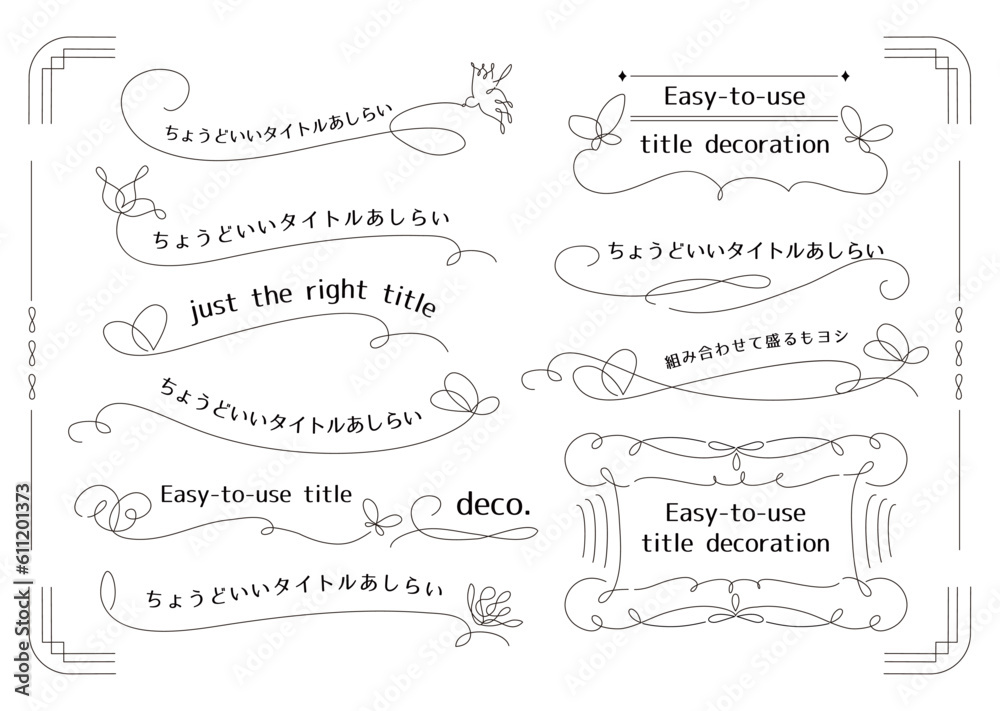 ちょうどいいタイトルあしらい
ちょうどいいタイトルあしらい
just the right title
ちょうどいいタイトルあしらい
Easy-to-use title
deco.
ちょうどいいタイトルあしらい
Easy-to-use
title decoration
ちょうどいいタイトルあしらい
組み合わせて盛るもヨシ
Easy-to-use
title decoration
Adobe Stock | #611201373